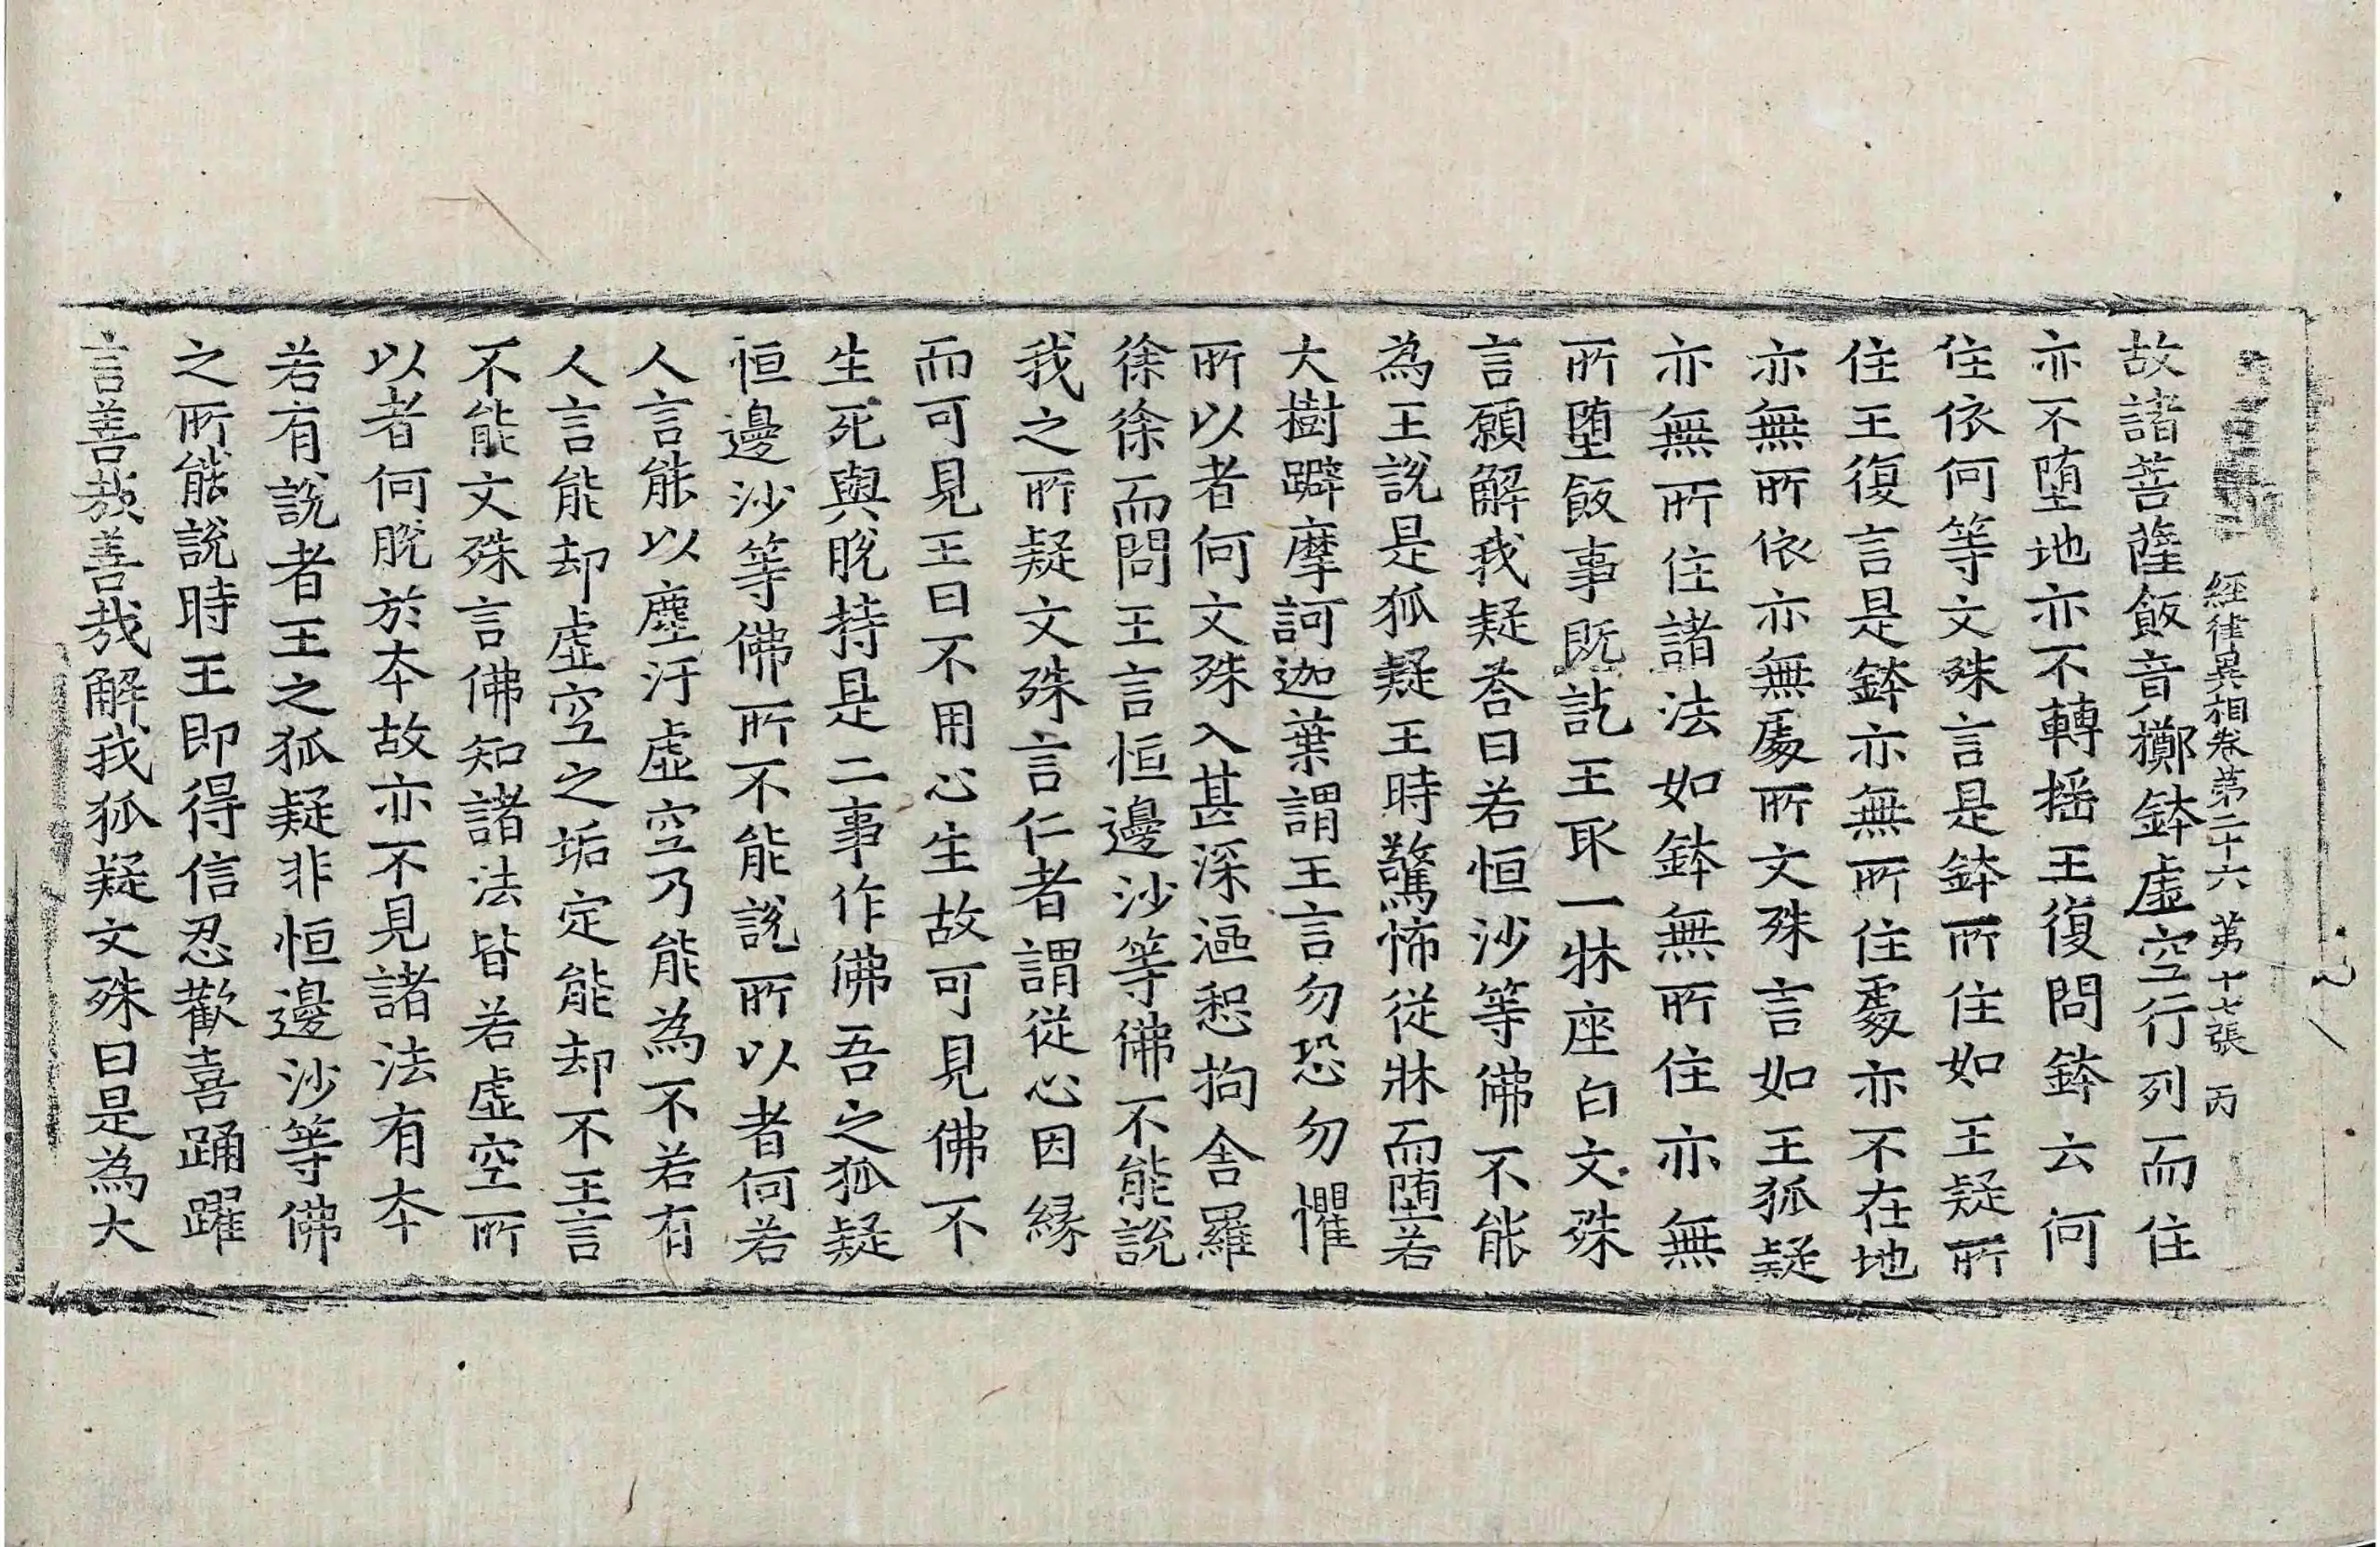 經律異相卷第二十六 第十七張 丙
故諸菩薩飯音擲鉢虛空行列而住
亦不墮地亦不轉搖王復問鉢云何
住依何等文殊言是鉢所住如王疑所
住王復言是鉢亦無所住處亦不在地
亦無所依亦無處所文殊言如王狐疑
亦無所住諸法如鉢無所住亦無
所墮飯事既訖王取一牀座白文殊
言願解我疑荅曰若恒沙等佛不能
為王說是狐疑王時驚怖從牀而墮若
大樹躃摩訶迦葉謂王言勿恐勿懼
所以者何文殊入甚深漚惒拘舍羅
徐徐而問王言恒邊沙等佛不能說
我之所疑文殊言仁者謂從心因緣
而可見王曰不用心生故可見佛不
生死與脫持是二事作佛吾之狐疑
恒邊沙等佛所不能說所以者何若
人言能以塵汙虛空乃能為不若有
人言能却虛空之垢定能却不王言
不能文殊言佛知諸法皆若虛空所
以者何脫於本故亦不見諸法有本
若有說者王之狐疑非恒邊沙等佛
之所能說時王即得信忍歡喜踊躍
言善哉善哉解我狐疑文殊曰是為大